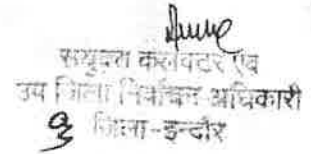 सयुक्त कलेक्टर एवं
उप जिला निर्वाचन अधिकारी
जिला-इन्दौर